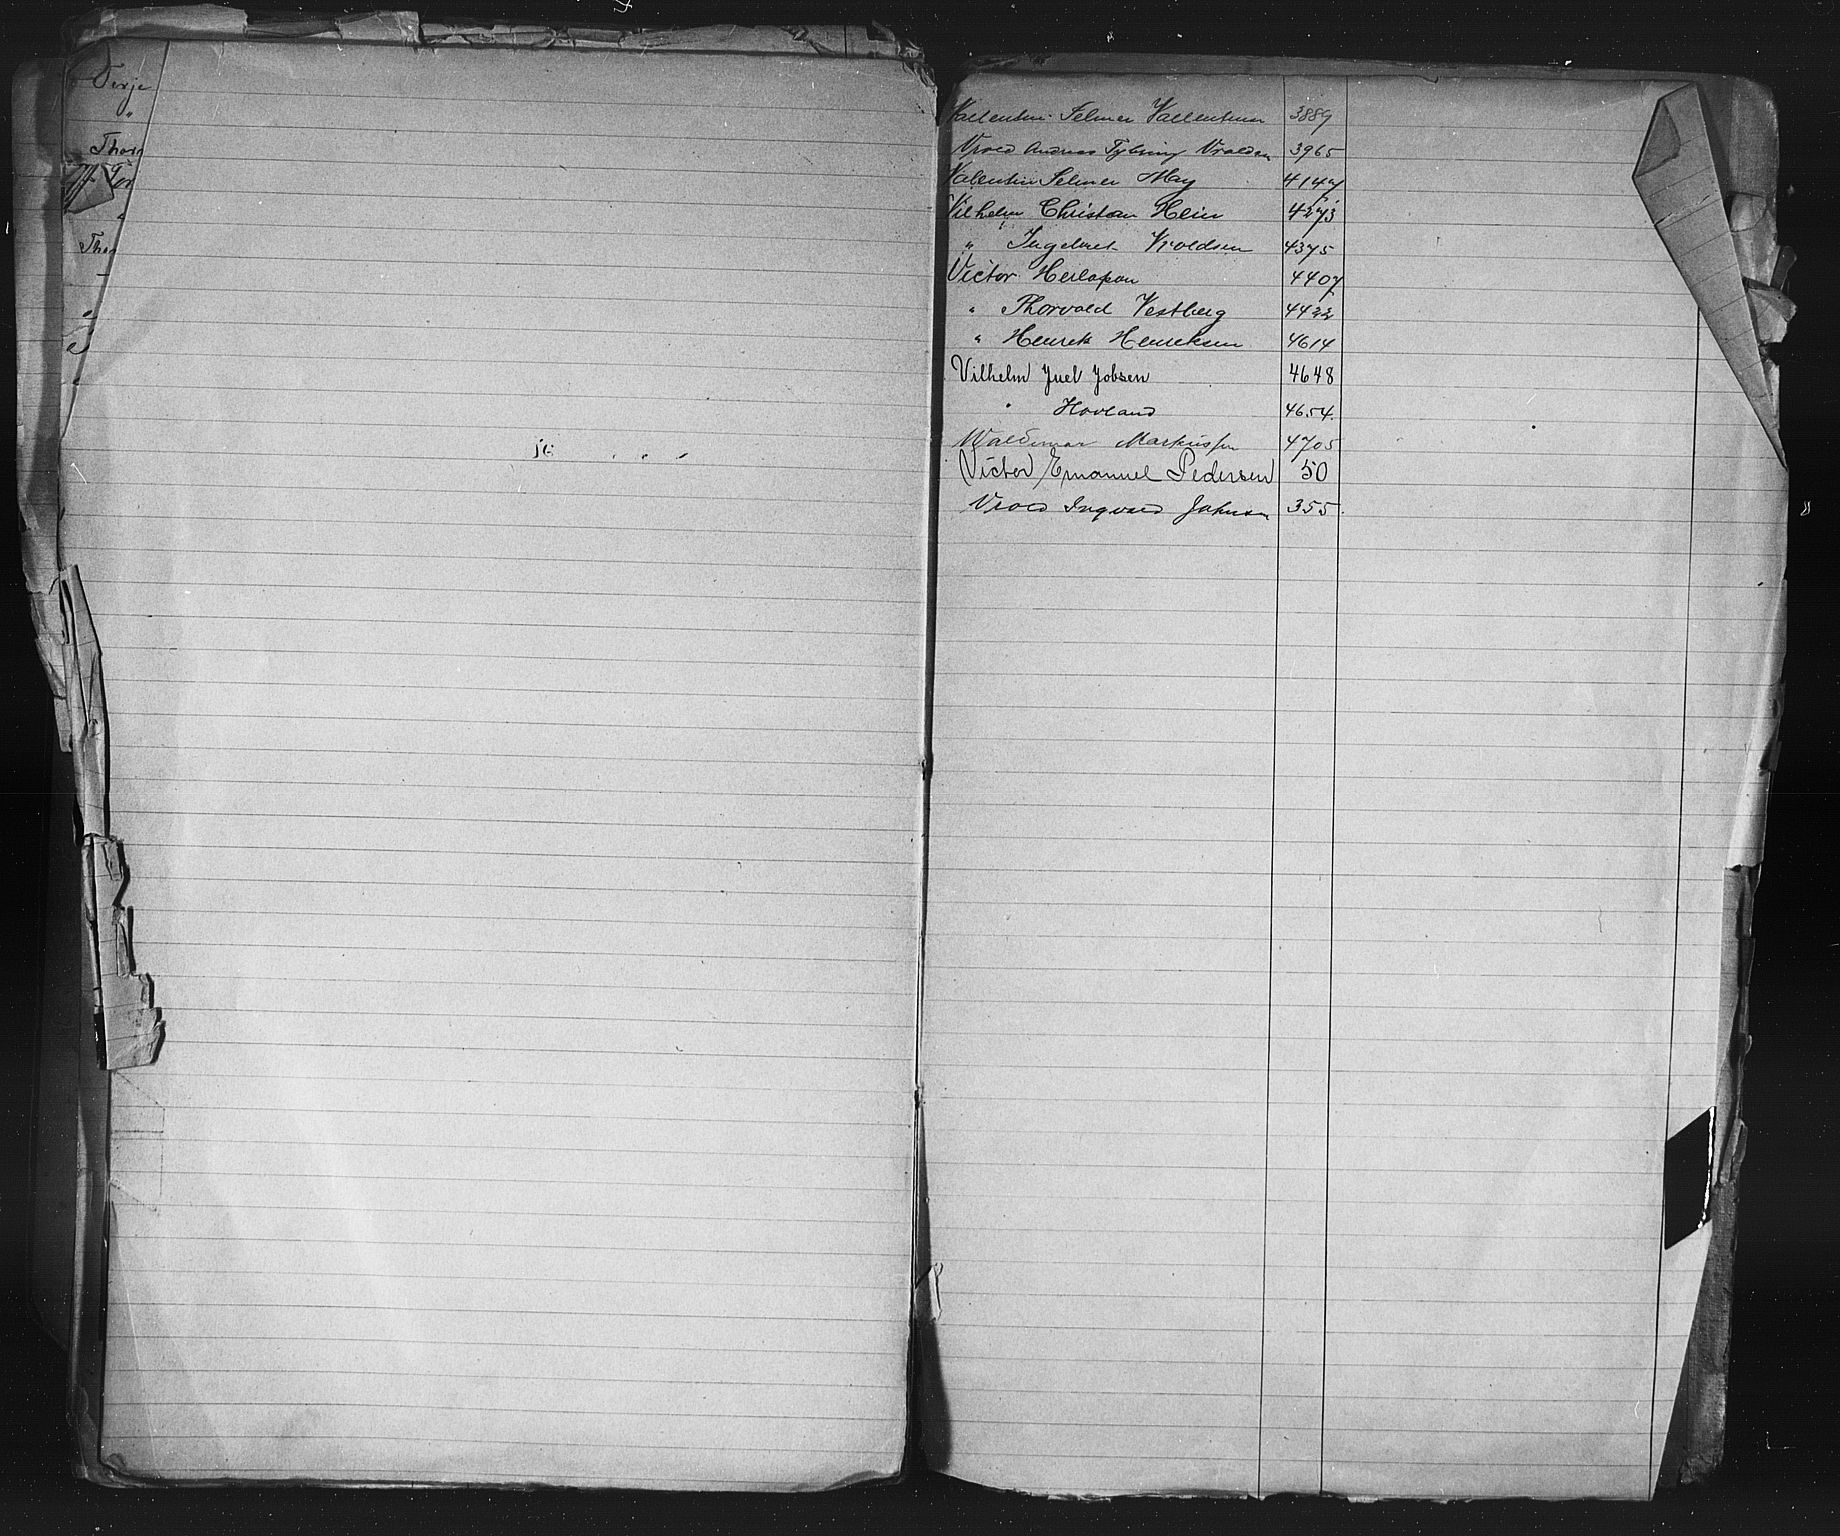 Terje
"
Thor
Tor
"
Thor
"
Vallentin Selmer Vallentinsen 3889
Vrold Andreas Tybring Vroldsen 3965
Valentin Selmer May 4147
Vilhelm Christian Hein 4273
" Ingebret Vroldsen 4375
Victor 4407
" Thorvald Vestberg 4422
" Henrik Henriksen 4614
Vilhelm Juel Jobsen 4648
" Hovland 4654.
Waldemar Markussen 4705
Victor Emanuel Pedersen 50
Vrold Ingvald Johnsen 355.